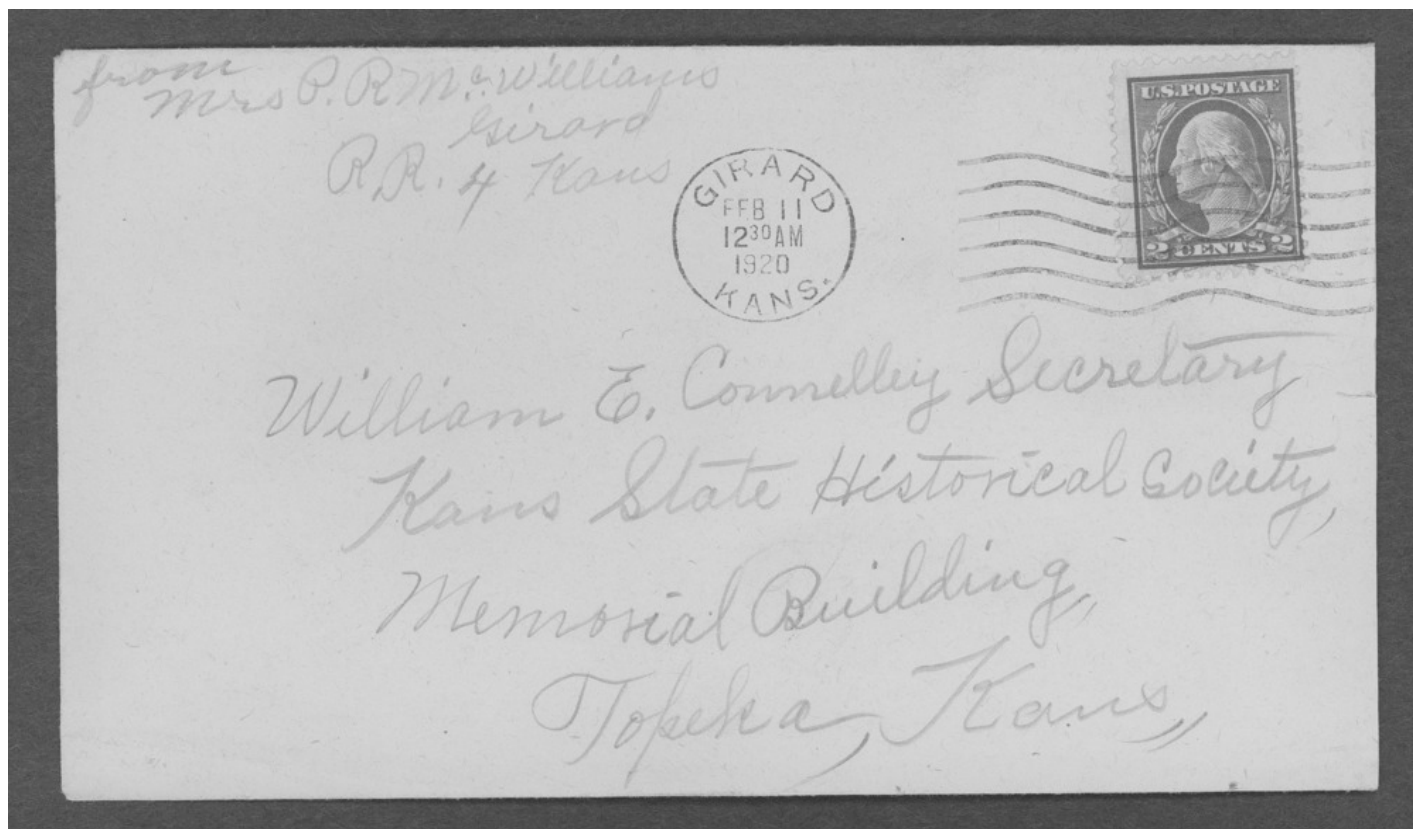 from
Mrs P. R Mc. Williams
Girard
R.R. 4 Kans
GIRARD
FEB 11
12 30 AM
1920
KANS.
U.S. POSTAGE
2 CENTS 2
William E. Connelley Secretary
Kans State Historical Society,
Memorial Building,
Topeka, Kans,,